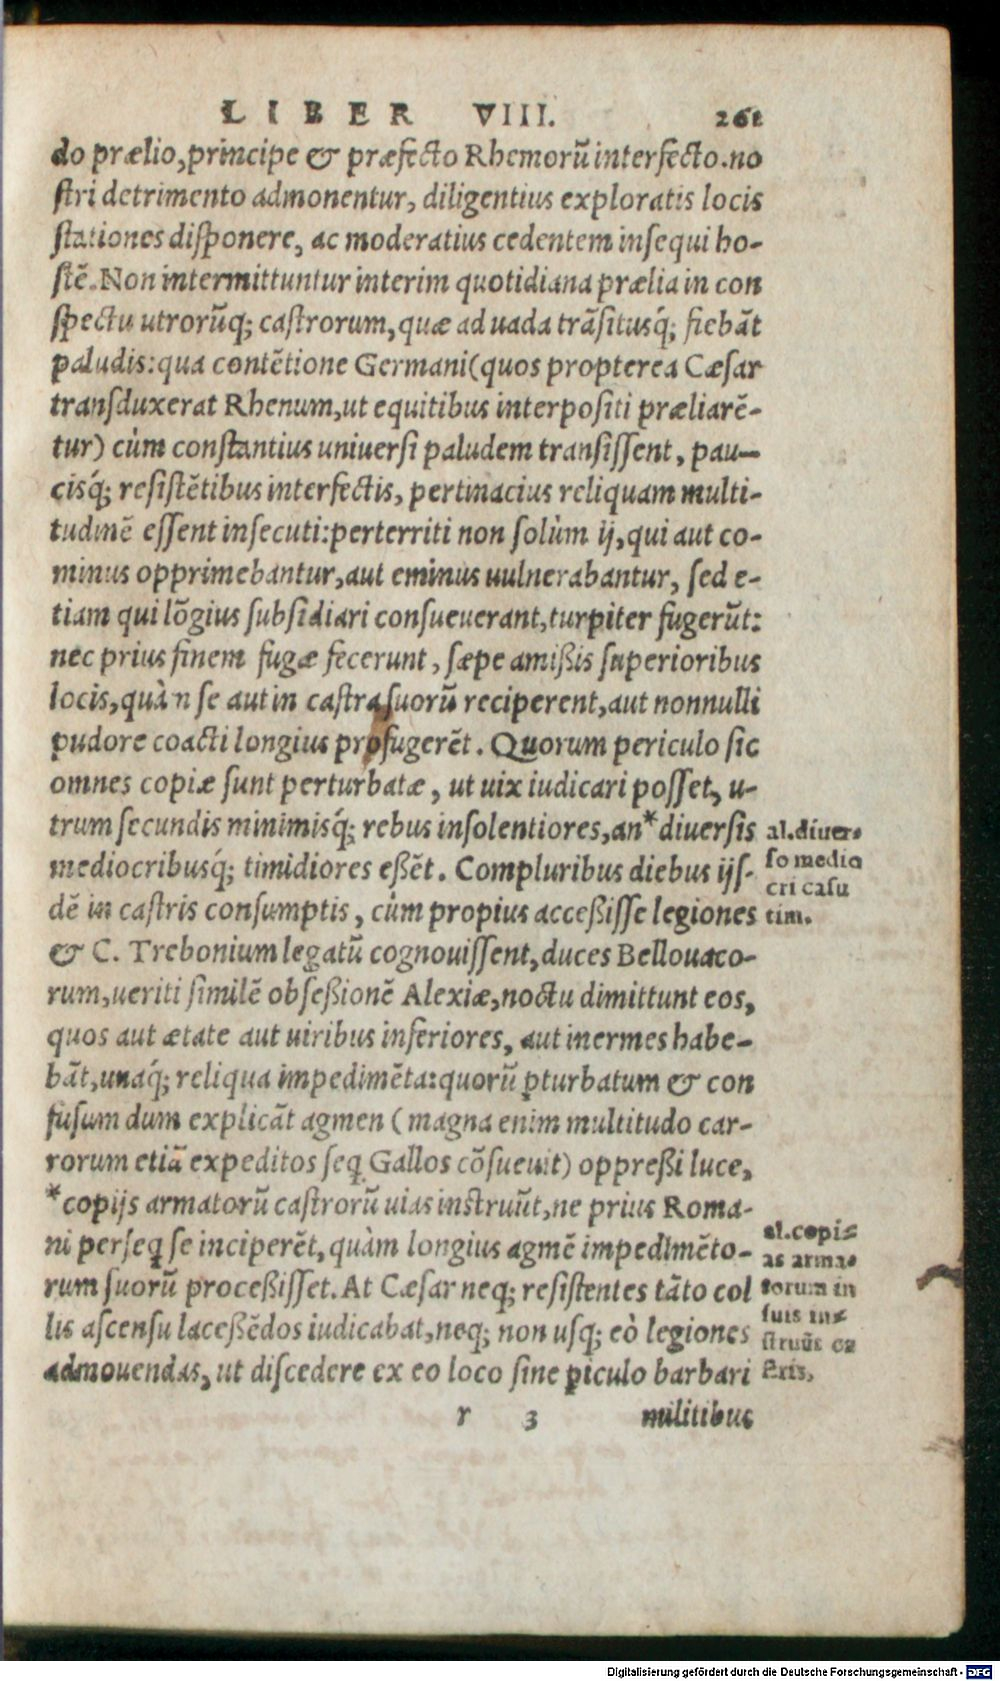 LIBER VIII. 261
do prælio, principe & præfecto Rhemorũ interfecto. no
ſtri detrimento admonentur, diligentius exploratis locis
ſtationes diſponere, ac moderatius cedentem inſequi ho-
ſtẽ. Non intermittuntur interim quotidiana prælia in con
ſpectu utrorũq́; caſtrorum, quæ ad uada trãſitusq́; fiebãt
paludis: qua contẽtione Germani (quos propterea Cæſar
tranſduxerat Rhenum, ut equitibus interpoſiti præliarẽ-
tur) cùm conſtantius uniuerſi paludem tranſiſſent, pau-
cisq́; reſiſtẽtibus interfectis, pertinacius reliquam multi-
tudinẽ eſſent inſecuti: perterriti non ſolùm ij, qui aut co-
minus opprimebantur, aut eminus uulnerabantur, ſed e-
tiam qui lõgius ſubſidiari conſueuerant, turpiter fugerũt:
nec prius finem fugæ fecerunt, ſæpe amißis ſuperioribus
locis, quàm ſe aut in caſtra ſuorũ reciperent, aut nonnulli
pudore coacti longius profugerẽt. Quorum periculo ſic
omnes copiæ ſunt perturbatæ, ut uix iudicari poſſet, u-
trum ſecundis minimisq́; rebus inſolentiores, an* diuerſis
mediocribusq́; timidiores eßẽt. Compluribus diebus ijſ-
dẽ in caſtris conſumptis, cùm propius acceßiſſe legiones
& C. Trebonium legatũ cognouiſſent, duces Bellouaco-
rum, ueriti ſimilẽ obſeßionẽ Alexiæ, noctu dimittunt eos,
quos aut ætate aut uiribus inferiores, aut inermes habe-
bãt, unaq́; reliqua impedimẽta: quorũ ꝑturbatum & con
fuſum dum explicãt agmen (magna enim multitudo car-
rorum etiã expeditos ſeq̨ Gallos cõſueuit) oppreßi luce,
*copijs armatorũ caſtrorũ uias inſtruũt, ne prius Roma-
ni perſeq̨ ſe inciperẽt, quàm longius agmẽ impedimẽto-
rum ſuorũ proceßiſſet. At Cæſar neq; reſiſtentes tãto col
lis aſcenſu laceßẽdos iudicabat, neq; non uſq; eò legiones
admouendas, ut diſcedere ex eo loco ſine ꝑiculo barbari
r 3 militibus
al. diuer-
ſo medio
cri caſu
tim.
al. copi-
as arma-
torum in
ſuis in-
ſtruũt ca
ſtris,
Digitalisierung gefördert durch die Deutsche Forschungsgemeinschaft - DFG